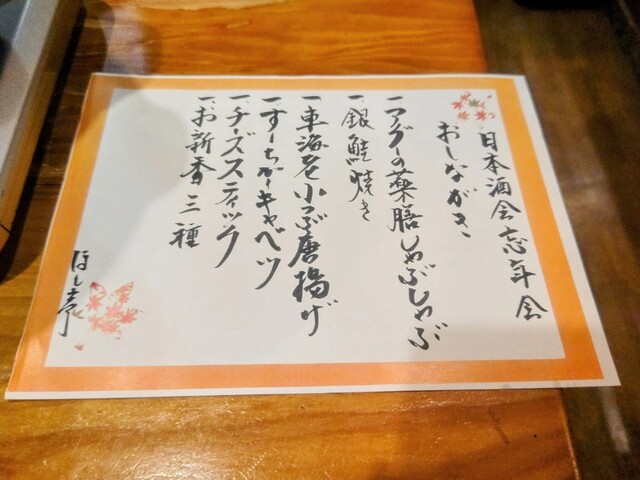 日本酒会忘年会
おしながき
一、アグーの薬膳しゃぶしゃぶ
一、銀鮭焼き
一、車海老小ぶ唐揚げ
一、すーちかーキャベツ
一、チーズスティック
一、お新香三種